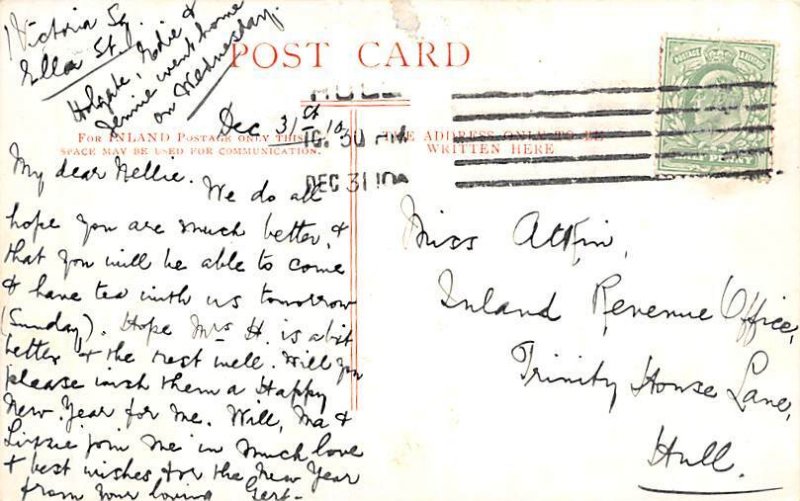 1 Victoria Sq
Ella St.
Holgate, Edie &
Jennie went home
on Wednesday.
POST CARD
HULL
10.30 PM
DEC 31 10
FOR INLAND POSTAGE ONLY THIS
SPACE MAY BE USED FOR COMMUNICATION.
THE ADDRESS ONLY TO BE
WRITTEN HERE
Dec. 31st 10
My dear Nellie.
We do all
hope you are much better, &
that you will be able to come
& have tea with us tomorrow
(Sunday). Hope Mrs H. is a bit
better & the rest well. Will you
please wish them a Happy
New Year for me. Will, Ma &
Lizzie join me in much love
& best wishes for the New Year
from your loving Gert-
Miss Atkin,
Inland Revenue Office,
Trinity House Lane,
Hull.
POSTAGE REVENUE
PENNY